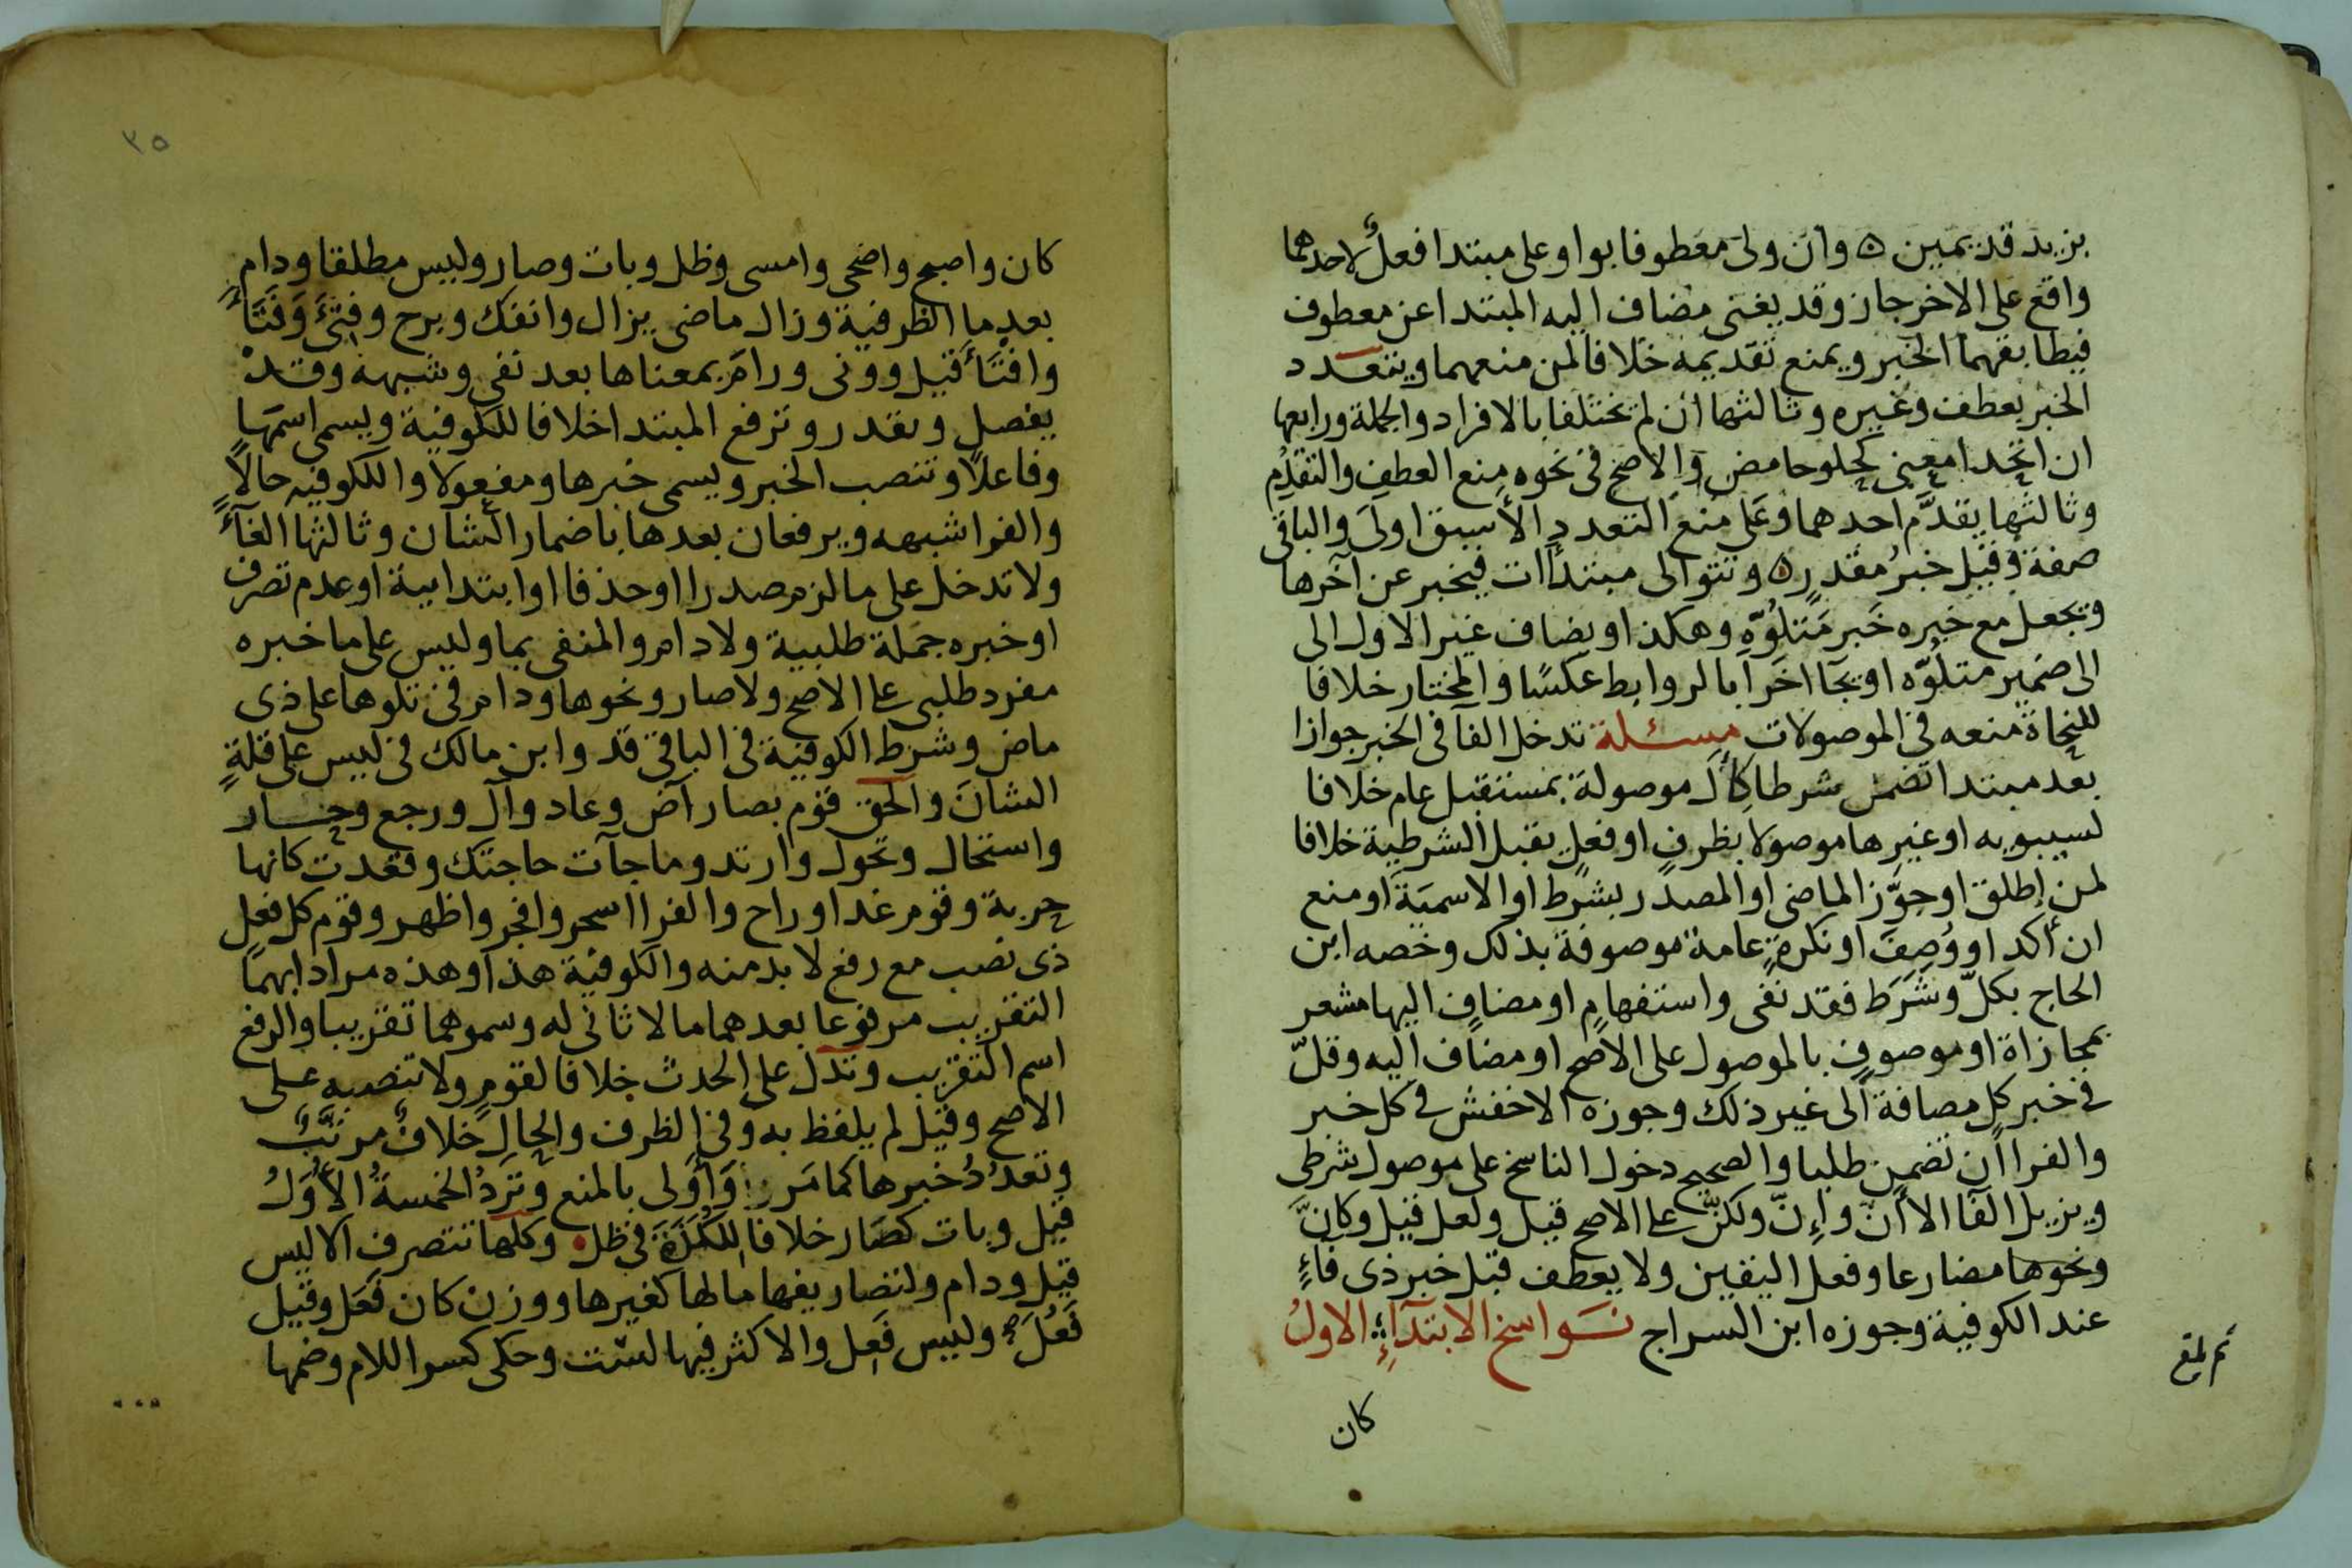 بزيد قديمين ٥ وان ولى معطوفا بواو على مبتدا فعلٌ لاحدهما
واقع على الاخر جاز وقد يغنى مضاف اليه المبتدا عن معطوف
فيطابقهما الخبر ويمنع تقديمه خلافا لمن منعهما ويتعدد
الخبر بعطف وغيره وثالثها ان لم يختلفا بالافراد والجملة ورابعها
ان اتحدا معنى كحلو حامض والاصح فى نحوه منع العطف والتقدُم
وثالثها يقدَّم احدهما وعلى منع التعدد الأسبق اولى والباقى
صفة وقيل خبرُ مقدر ٥ وتتوالى مبتدأات فيخبر عن آخرها
ويجعل مع خبره خَبر مَتلوِّه وهكذا او يضاف غير الاول الى
الى ضمير متلوِّه او يجآ اخَرا بالروابط عكسًا والمختار خلافا
للنحاة منعه فى الموصولات مسئلة تدخل الفآ فى الخبر جوازا
بعد مبتدا تضمن شرطا كأل موصولة بمستقبل عام خلافا
لسيبويه او غيرها موصولا بظرفٍ او فعلٍ يقبل الشرطية خلافا
لمن اطلق او جوَّز الماضى او المصدر بشرط او الاسميَةَ او منع
ان أكد او وُصِفَ او نكرةٍ عامة موصوفة بذلك وخصه ابن
الحاج بكلّ وشَرَط فقد نفى واستفهامٍ او مضافٍ اليها مشعر
بمجازاة او موصوفٍ بالموصول على الاصح او مضاف اليه وقلّ
فى خبر كل مصافة الى غير ذلك وجوزه الاخفش فى كل خبر
والفرا ان تضمن طلبا والصحيح دخول الناسخ على موصول شرطى
ويزيل الفآ الا أنّ وإنّ ولكنّ على الاصح قيل ولعل قيل وكانَّ
ونحوها مضارعا وفعل اليقين ولا يعطف قبل خبر ذى فاءٍ
عند الكوفية وجوزه ابن السراج نَسَواسخ الابتدآءِ الاولُ
كان
٣٥
كان واصبح واضحى وامسى وظل وبات وصار وليس مطلقا ودام
بعد ما الظرفية وزال ماضى يزال وانفك وبرح وفتِئَ وَفَتَأ
وافتَأ قيل وونى ورام بمعناها بعد نفى وشبهه وقد
يفصل ويقدر وترفع المبتدا خلافا للكوفية ويسمى اسمَها
وفاعلًا وتنصب الخبر ويسمى خبرها ومفعولا والكوفيه حالًا
والفرا شبهه ويرفعان بعدها باضمار الشان وثالثها الغآءً
ولا تدخل على ما لزم صدرا او حذفا او ابتداىية او عدم تصرف
او خبره جملة طلبية ولا دام والمنفى بما وليس على ما خبره
مفرد طلبى على الاصح ولا صار ونحوها ودام فى تلوها على ذى
ماض وشرط الكوفية فى الباقى قد وابن مالك فى ليس على قلةٍ
الشانَ والحق قوم بصار آض وعاد وآل ورجع وحار
واستحال وتحول وارتد وما جآت حاجتك وقعدت كانها
حربة وقوم غدا وراح والفرا اسحر وافجر واظهر وقوم كل فعل
ذى نصب مع رفع لا بد منه والكوفية هذا وهذه مرادا بهما
التقريب مرفوعا بعدهما ما لا ثانى له وسموهما تقريبا والرفع
اسم التقريب وتدل على الحدث خلافا لقومٍ ولا تنصبه على
الاصح وقيل لم يلفظ به وفى الظرف والحال خلافٌ مرتَّبٌ
وتعدُدُ خبرها كما مَر وَأولى بالمنع وتَرِدُ الخمسةُ الأوَلُ
قيل وبات كصَار خلافا للكزة فى ظل وكلها تتصرف الا ليس
قيل ودام ولتصاريفها ما لها كغيرها ووزن كان فَعَل وقيل
فَعُلَ وليس فَعِل والاكثر فيها لست وحكى كسر اللام وضمها